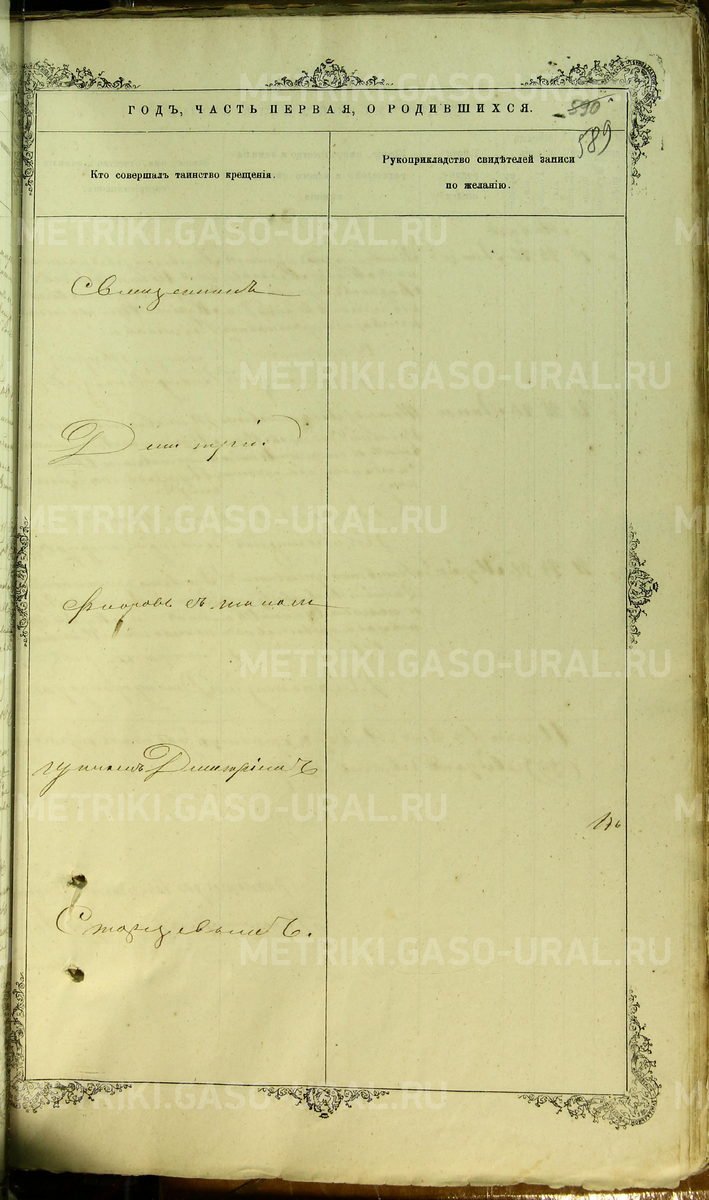 ГОДЪ, ЧАСТЬ ПЕРВАЯ, О РОДИВШИХСЯ.
590
589
Кто совершалъ таинство крещенія.
Рукоприкладство свидѣтелей записи
по желанію.
Священникъ
Дмитрій
Флоровъ съ
Дмитріемъ
Старцевымъ.
METRIKI.GASO-URAL.RU
METRIKI.GASO-URAL.RU
METRIKI.GASO-URAL.RU
METRIKI.GASO-URAL.RU
METRIKI.GASO-URAL.RU
METRIKI.GASO-URAL.RU
METRIKI.GASO-URAL.RU
METRIKI.GASO-URAL.RU